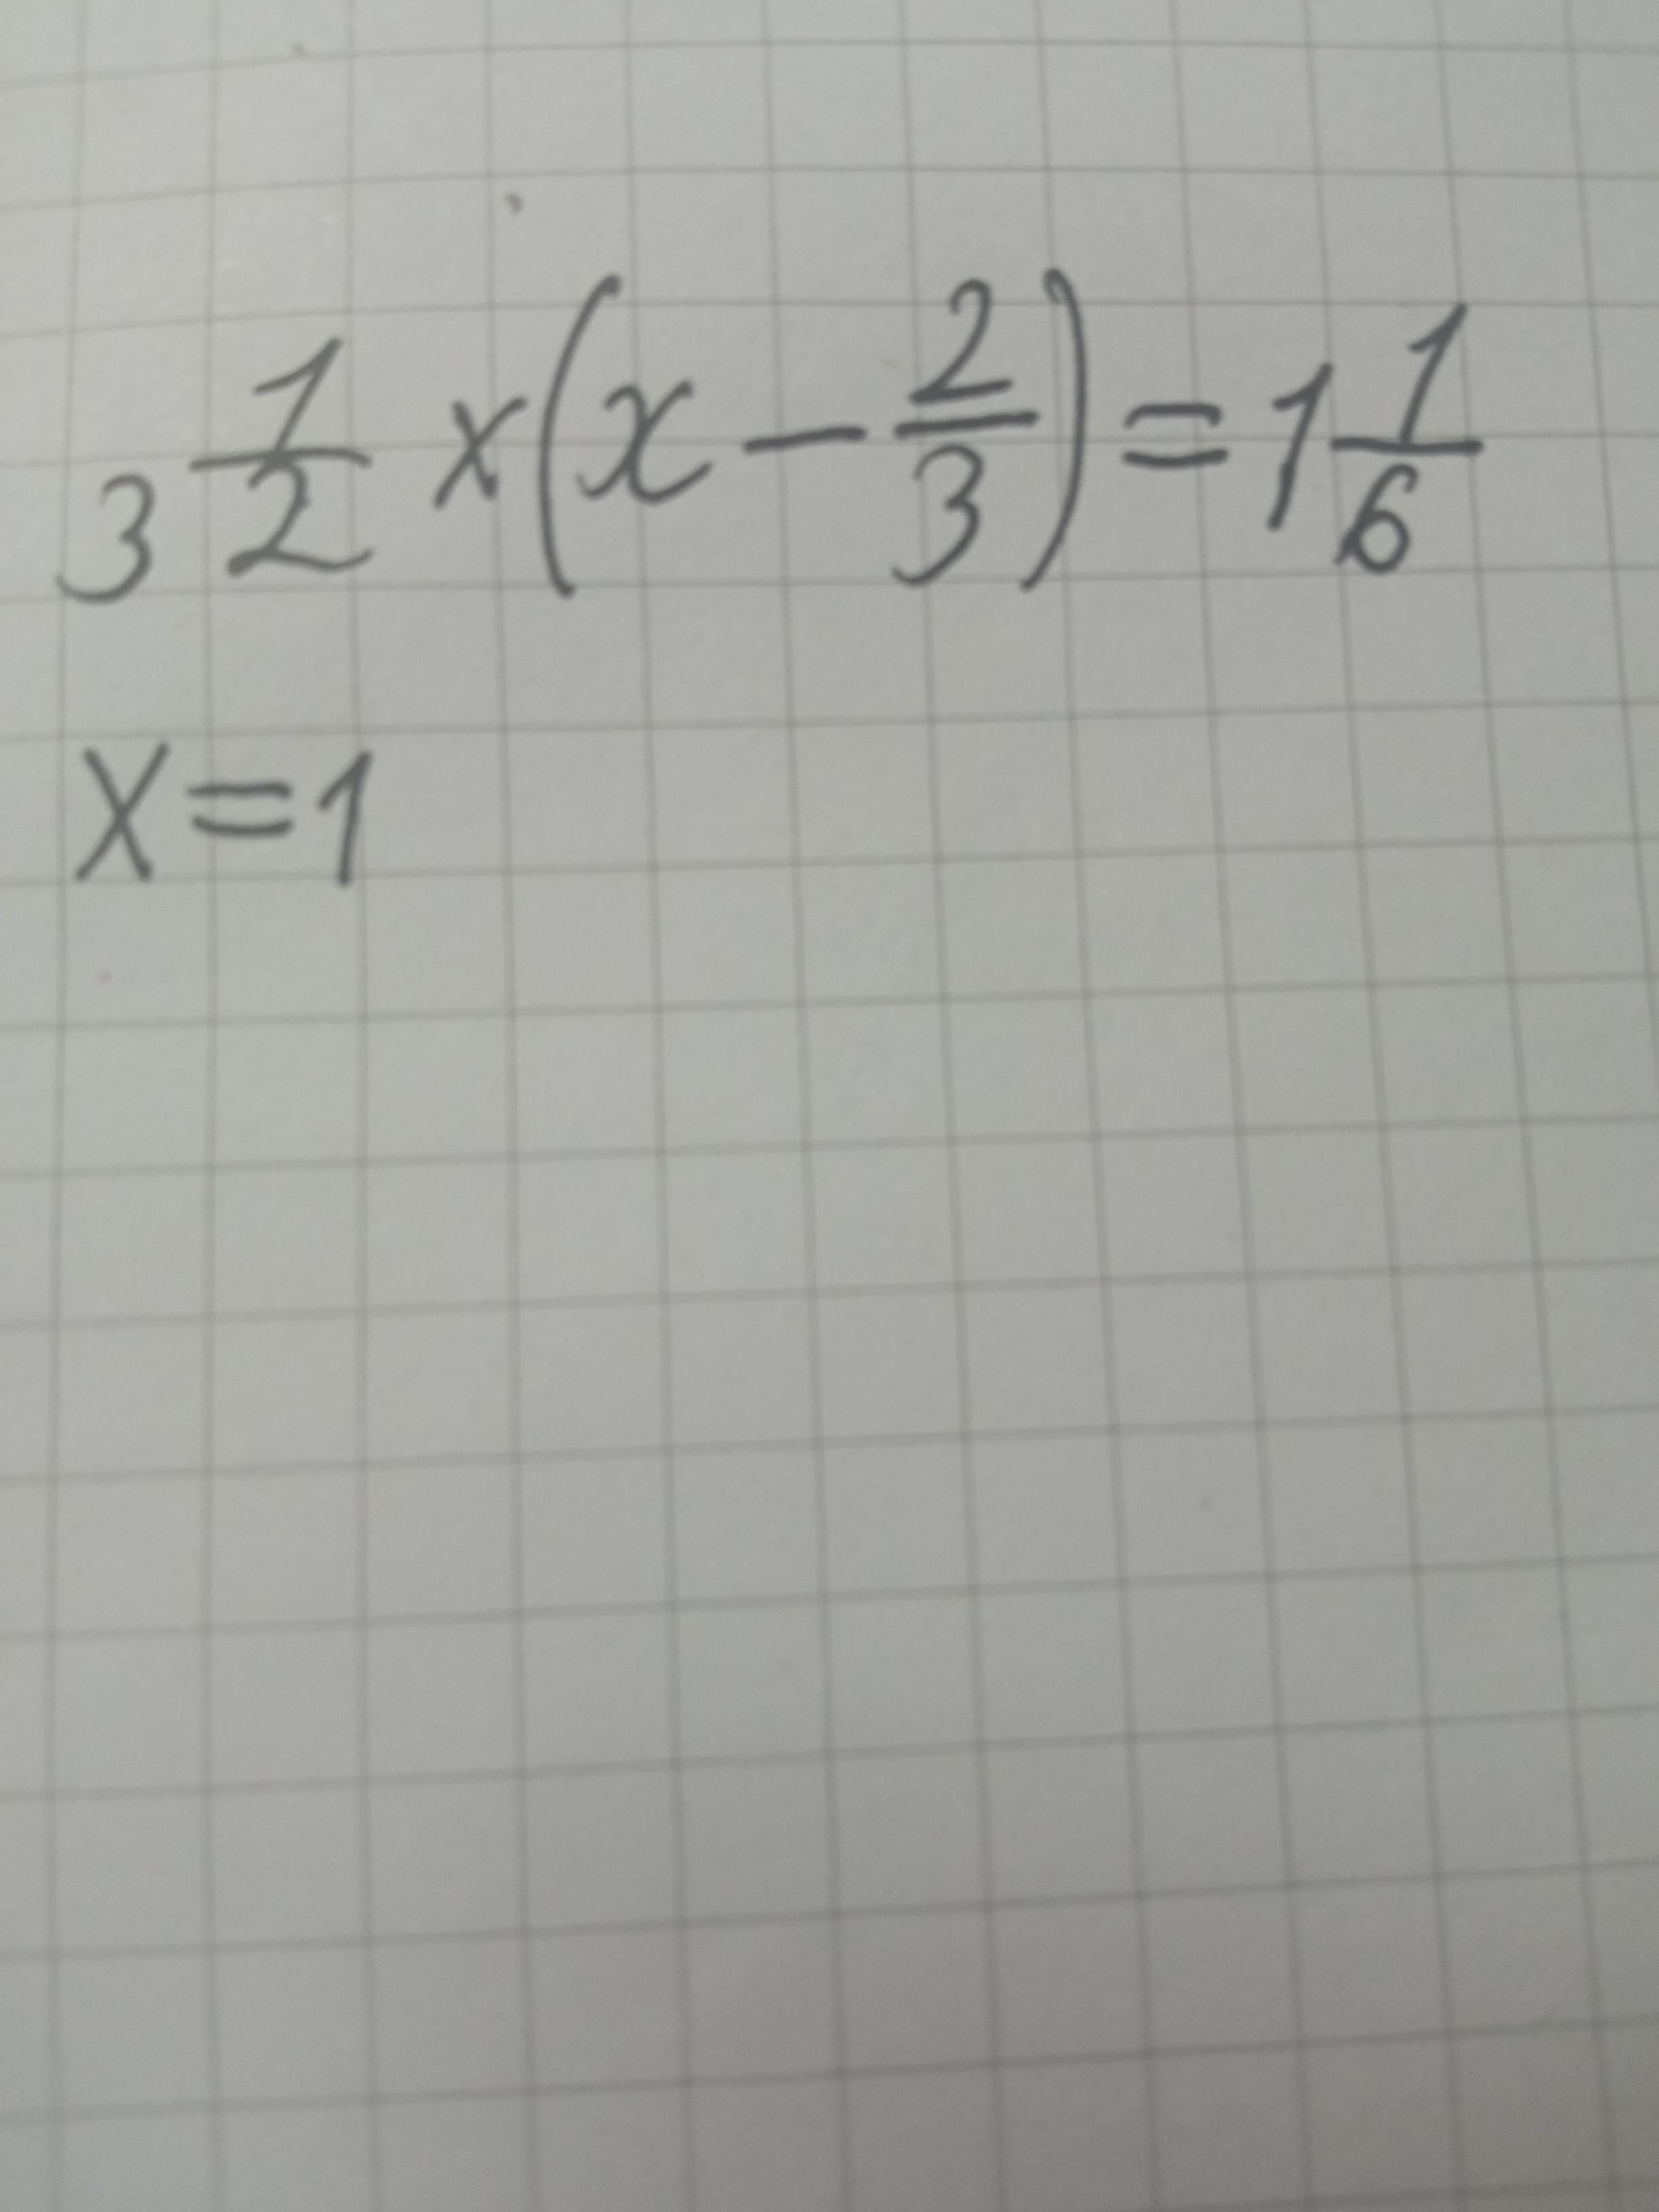 3 1/2 × (x − 2/3) = 1 1/6
X = 1